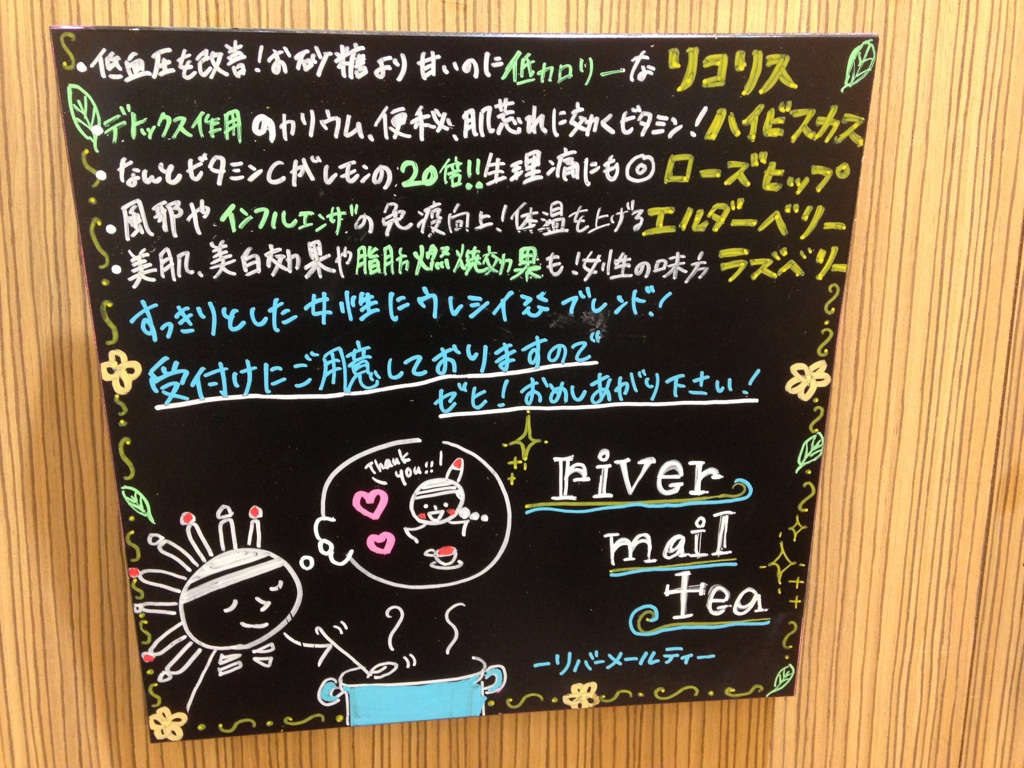 ・低血圧を改善!お砂糖より甘いのに低カロリーな リコリス
・デトックス作用のカリウム、便秘、肌荒れに効くビタミン!ハイビスカス
・なんとビタミンCがレモンの20倍!!生理痛にも◎ ローズヒップ
・風邪やインフルエンザの免疫向上!体温を上げるエルダーベリー
・美肌、美白効果や脂肪燃焼効果も!女性の味方 ラズベリー
すっきりとした女性にウレシイ ブレンド!
受付けにご用意しておりますので
ゼヒ!おめしあがり下さい!
Thank
you!!!
river
mail
tea
ーリバーメールティー